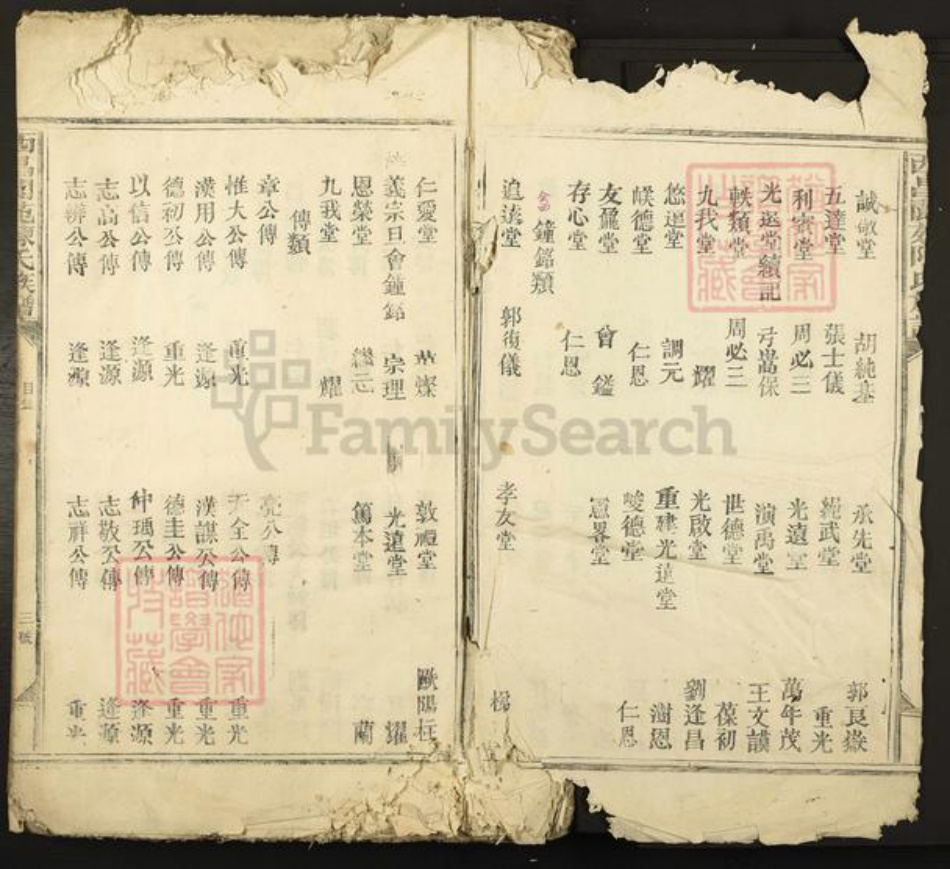 誠敬堂 胡純基 承先堂 郭良嶽
五達堂 張士儀 繩武堂 重光
利賓堂 周必三 光遠堂 萬年茂
光遠堂續記 弓嵩保 演禹堂 王文謨
軼類堂 周必三 世德堂 葆初
九我堂 耀 光啟堂 劉逢昌
悠遠堂 調元 重建光遠堂 澍恩
峻德堂 仁恩 峻德堂 仁恩
友龍堂 曾鎰 憲畧堂
存心堂 仁恩
鐘銘類
追遠堂 郭復儀 孝友堂 楊
仁愛堂 燦 敦禮堂 歐陽柱
義宗旦會鐘銘 宗理 光遠堂 耀
恩榮堂 篤本堂 蘭
九我堂 耀
傳類
章公傳 亮公傳
惟大公傳 重光 全公傳 重光
漢用公傳 逢源 漢謀公傳 重光
德初公傳 重光 德圭公傳 重光
以信公傳 逢源 仲瑀公傳 逢源
志高公傳 逢源 志敬公傳 逢源
志辨公傳 逢源 志祥公傳 重光
三號
FamilySearch